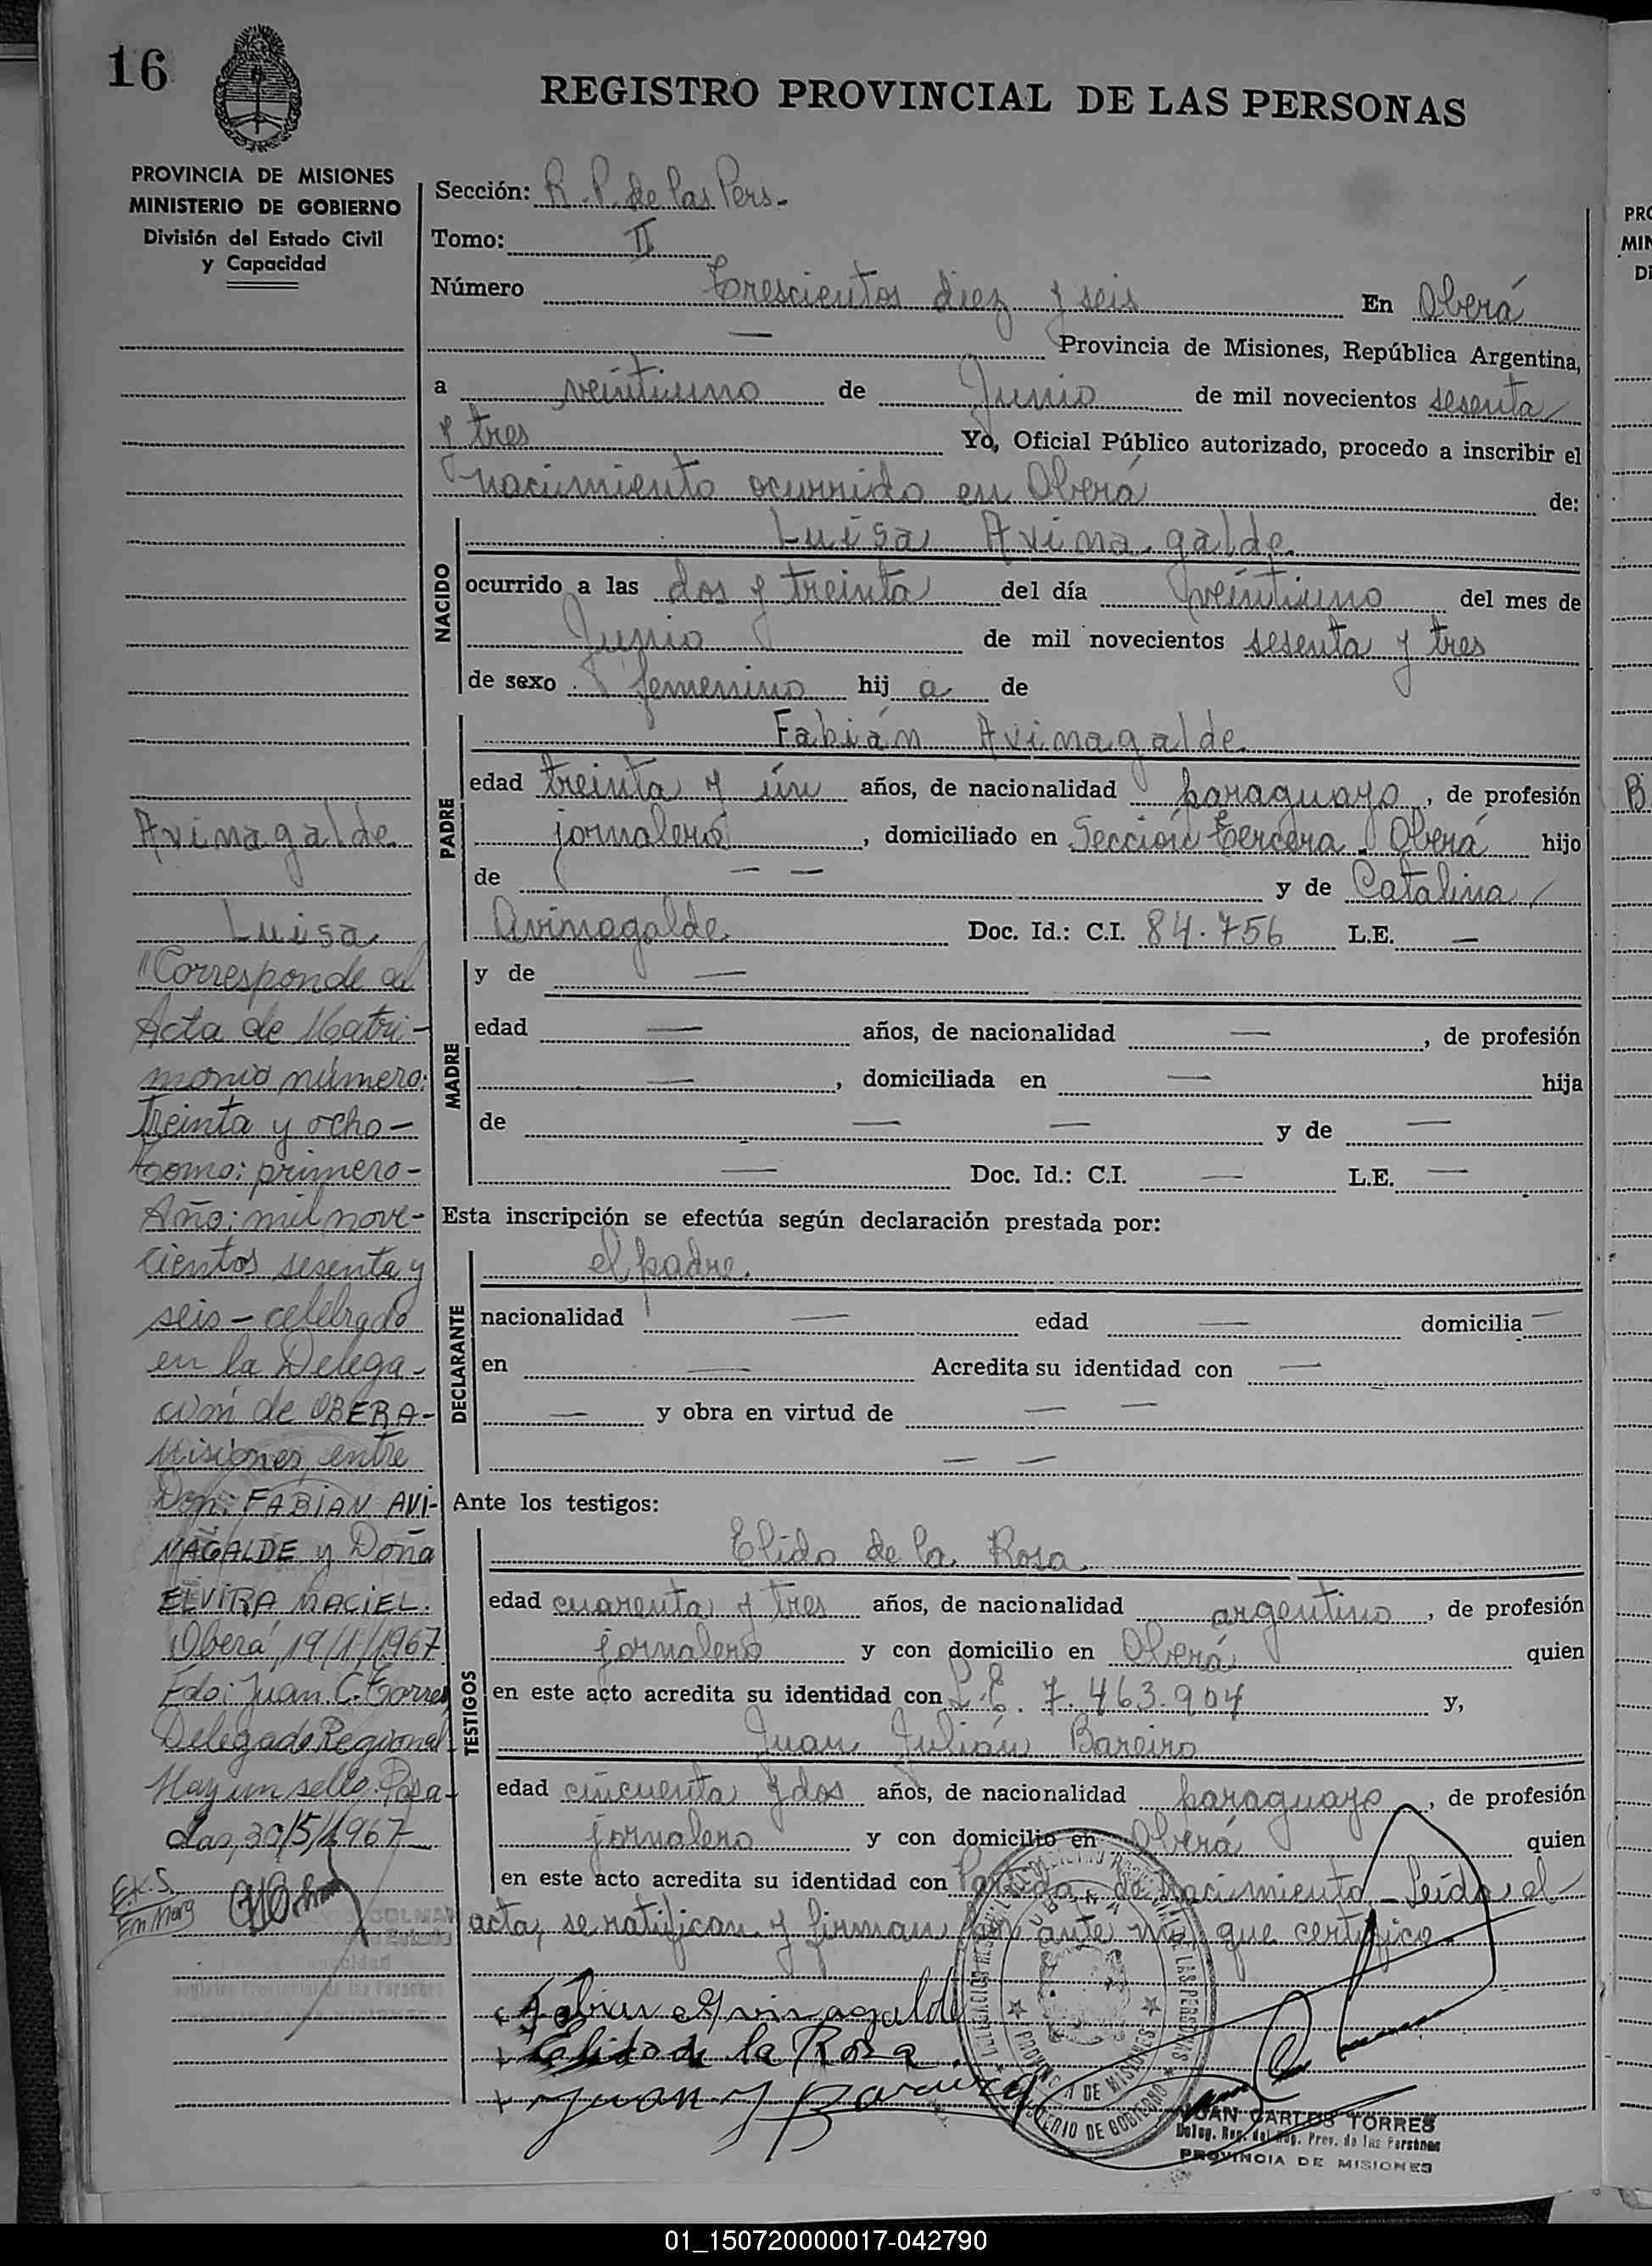 16
REGISTRO PROVINCIAL DE LAS PERSONAS
PROVINCIA DE MISIONES
MINISTERIO DE GOBIERNO
División del Estado Civil
y Capacidad
Sección: R. P. de las Pers.
Tomo: II
Número Trescientos diez y seis En Oberá
— Provincia de Misiones, República Argentina,
a veintiuno de Junio de mil novecientos sesenta
y tres Yo, Oficial Público autorizado, procedo a inscribir el
nacimiento ocurrido en Oberá de:
NACIDO
Luisa Avinagalde
ocurrido a las dos y treinta del día veintiuno del mes de
Junio de mil novecientos sesenta y tres
de sexo femenino hij a de
PADRE
Fabián Avinagalde
edad treinta y ún años, de nacionalidad paraguayo, de profesión
jornalero, domiciliado en Sección tercera. Oberá hijo
de — — y de Catalina
Avinagalde. Doc. Id.: C.I. 84.756 L.E. —
MADRE
y de —
edad — años, de nacionalidad —, de profesión
—, domiciliada en — hija
de — — y de —
— Doc. Id.: C.I. — L.E. —
Esta inscripción se efectúa según declaración prestada por:
DECLARANTE
el padre.
nacionalidad — edad — domicilia —
en — Acredita su identidad con —
— y obra en virtud de — —
— —
Ante los testigos:
TESTIGOS
Elido de la Rosa
edad cuarenta y tres años, de nacionalidad argentino, de profesión
jornalero y con domicilio en Oberá quien
en este acto acredita su identidad con L.E. 7.463.904 y,
Juan Julián Bareiro
edad cincuenta y dos años, de nacionalidad paraguayo, de profesión
jornalero y con domicilio en Oberá quien
en este acto acredita su identidad con Partida de Nacimiento - Leída el
acta, se ratifican y firman por ante mí que certifico.
Fabian Avinagalde
Elido de la Rosa
Juan J Bareiro
PROVINCIA DE MISIONES
MINISTERIO DE GOBIERNO
JUAN CARLOS TORRES
Deleg. Reg. del Reg. Prov. de las Personas
PROVINCIA DE MISIONES
Avinagalde
Luisa
"Corresponde al
Acta de Matri-
monio número:
Treinta y ocho-
tomo: primero-
Año: mil nove-
cientos sesenta y
seis - celebrado
en la Delega-
ción de OBERA-
Misiones entre
Don: FABIAN AVI-
ÑAGALDE y Doña
ELVIRA MACIEL.
Oberá, 19/1/1967
Fdo: Juan C. Torres
Delegado Regional
Hay un sello. Posa-
das, 30/5/1967
Ex. S.
En Marg
PRO
MIN
Di
B
01_150720000017-042790